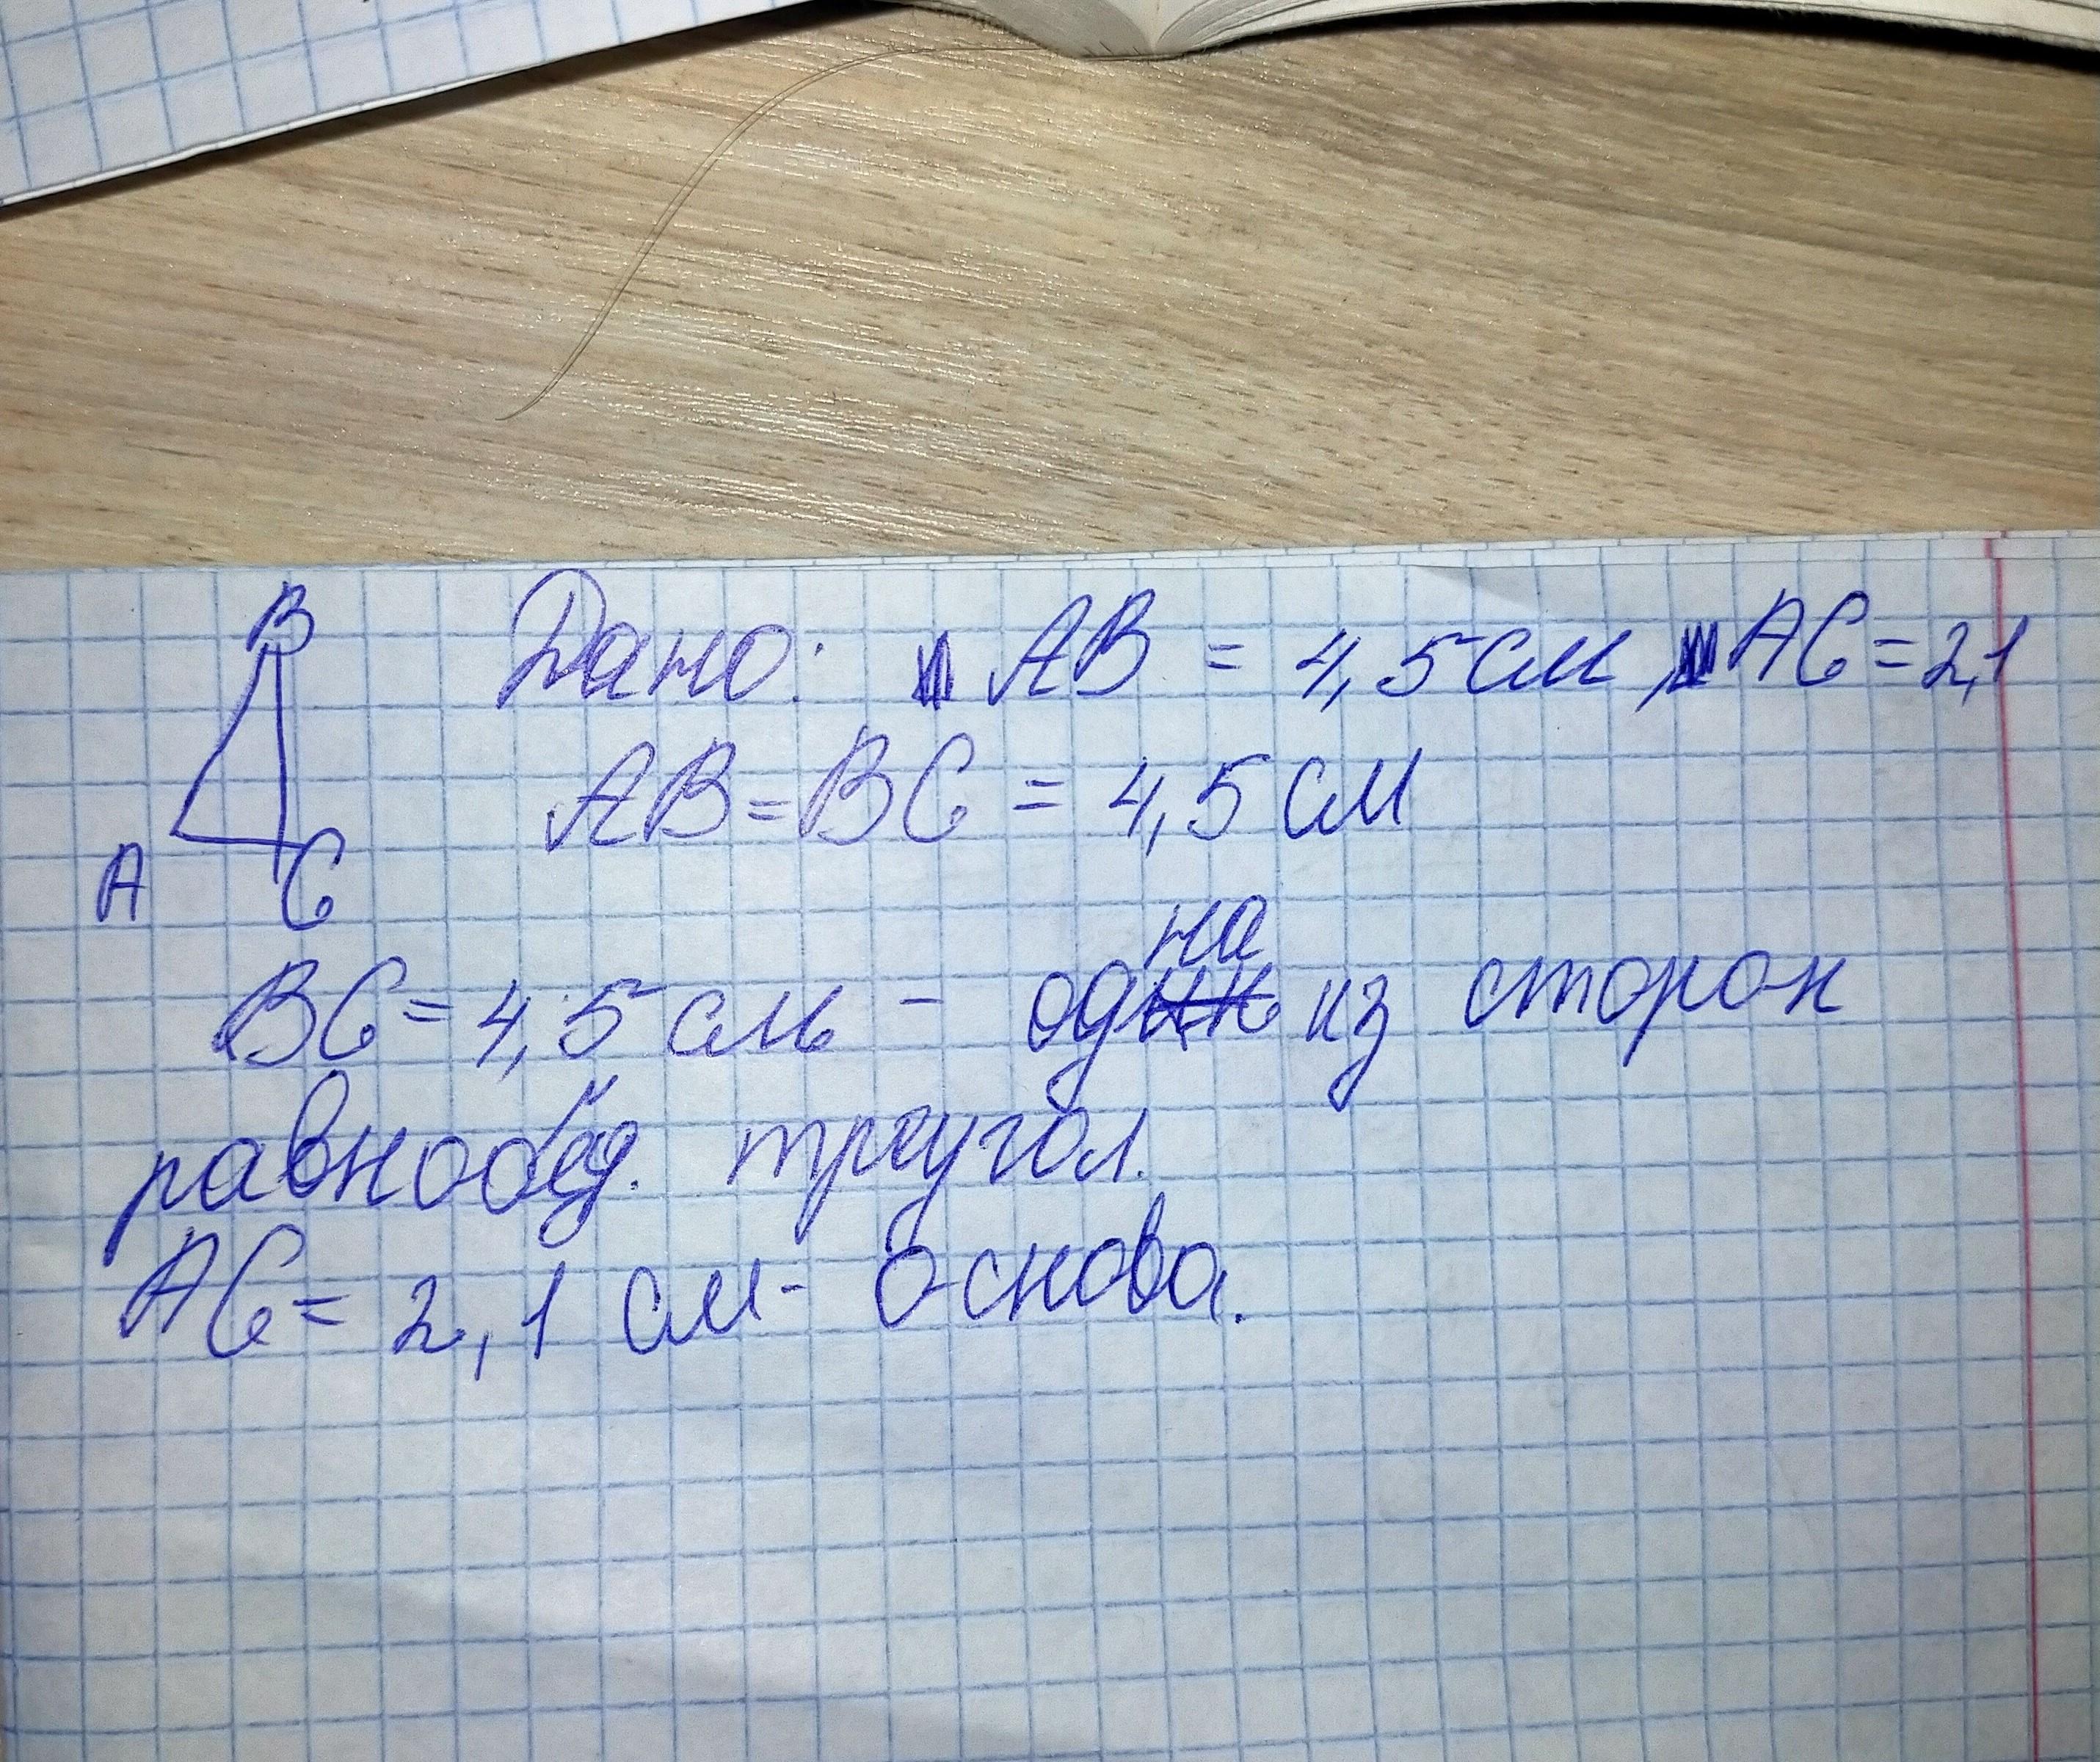 B
Дано: AB = 4,5 см, AC = 2,1
AB = BC = 4,5 см
A C
на
BC = 4,5 см - од из сторон
равнобед. треугол.
AC = 2,1 см - основа.